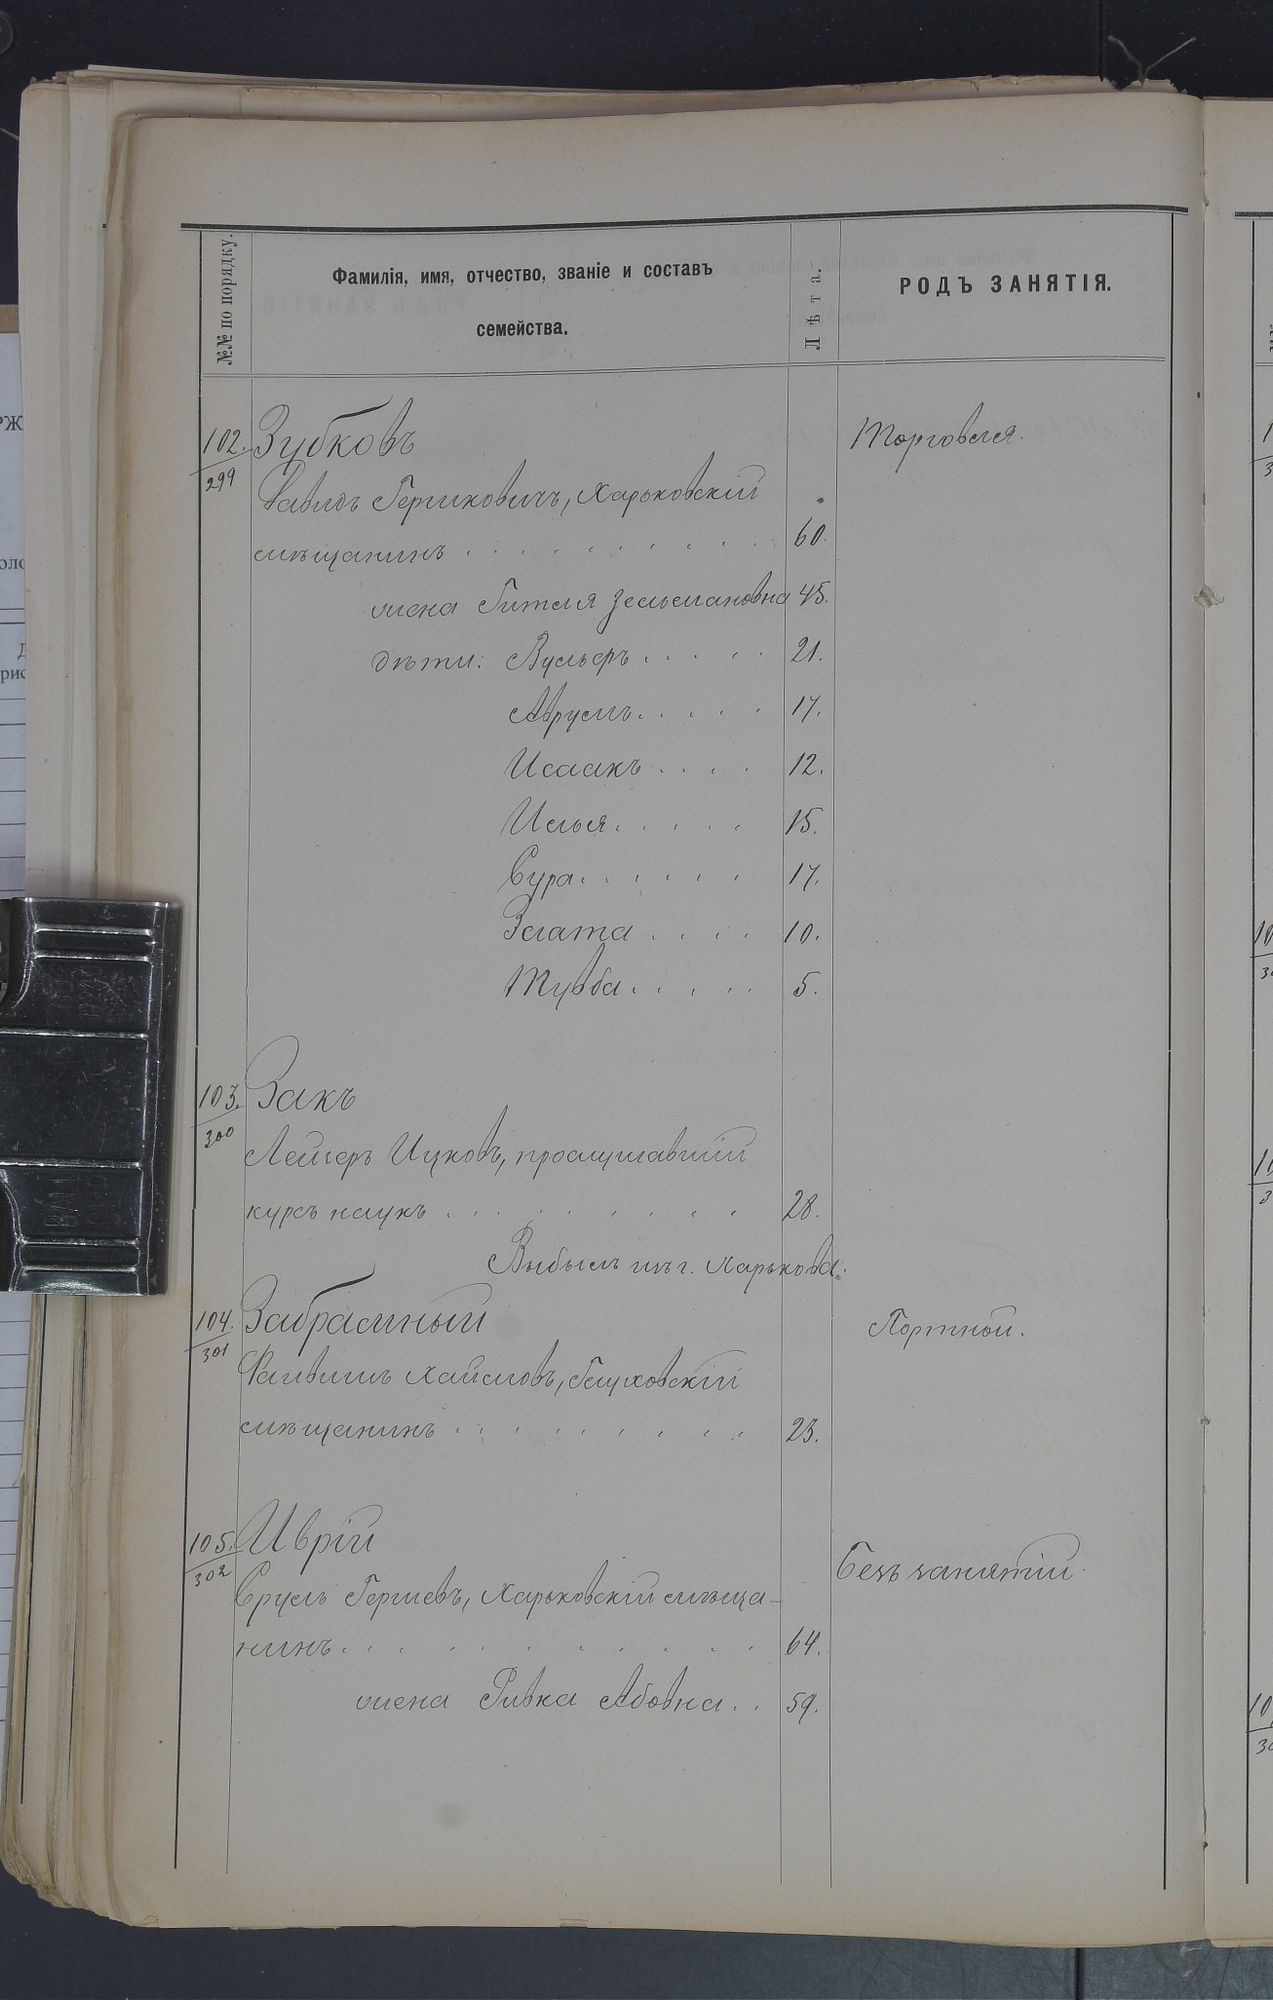 №№ по порядку.
Фамилія, имя, отчество, званіе и составъ
семейства.
Лѣта.
РОДЪ ЗАНЯТІЯ.
102. Зубковъ Торговля.
299
Давидъ Гершковичъ, Харьковскій
мѣщанинъ . . . . . . . . 60.
жена Гителя Зельмановна 45.
дѣти: Вульфъ . . . . . 21.
Аврумъ . . . . . 17.
Исаакъ . . . . 12.
Илья . . . . . 15.
Сура . . . . . . 17.
Злата . . . . 10.
Тувба . . . . . 5.
103. Закъ
300
Лейзеръ Ицковъ, прослушавшій
курсъ наукъ . . . . . . . . 28.
Выбылъ изъ г. Харькова.
104. Забрамный Портной.
301
Файвишъ Хаймовъ, Глуховскій
мѣщанинъ . . . . . . . . 23.
105. Иврій Безъ занятій.
302
Сруль Гершевъ, Харьковскій мѣща-
нинъ . . . . . . . . . 64.
жена Ривка Абовна . . 59.